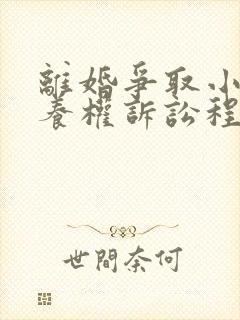 離婚爭取小
養權訴訟程
世間奈何